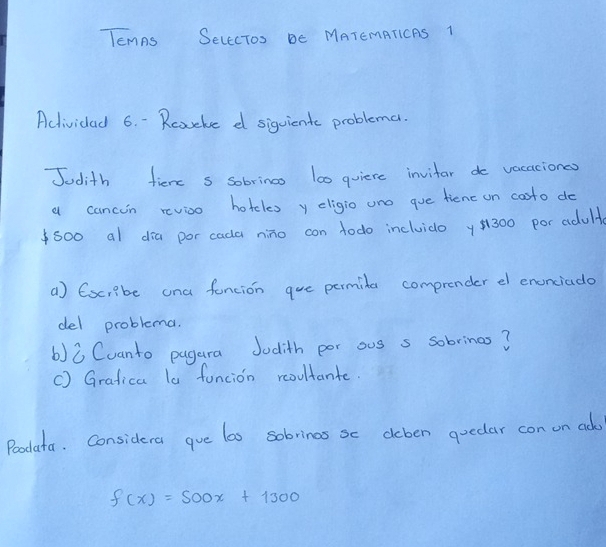 TEMAS SELECTOS DE MATEMATICAS 1
Actividad 6.- Resuelve el siguiente problema.
Judith tiene 5 sobrinos los quiere invitar de vacaciones
a cancún reviso hoteles y eligio uno que tiene un costo de
$500 al día por cada niño con todo incluido y $1300 por adulto
a) Escribe una función que permita comprender el enunciado
del problema.
b) ¿Cuanto pagara Judith por sus 5 sobrinos?
c) Grafica la función resultante.
Posdata. Considera que los sobrinos se deben quedar con un adul
f(x) = 500x + 1300